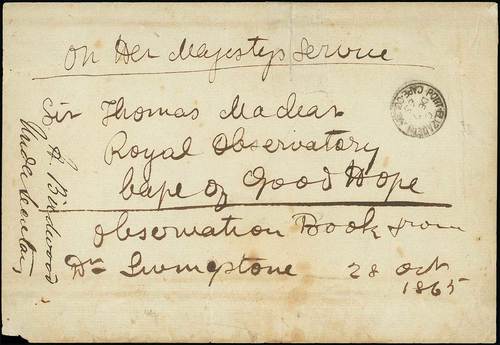 On Her Majestys Service
Sir Thomas Maclear
Royal Observatory
Cape of Good Hope
Observation Book from
Dr. Livingstone 28 Oct
1865
H. Birdwood
Under Secretary
PORT ELIZABETH